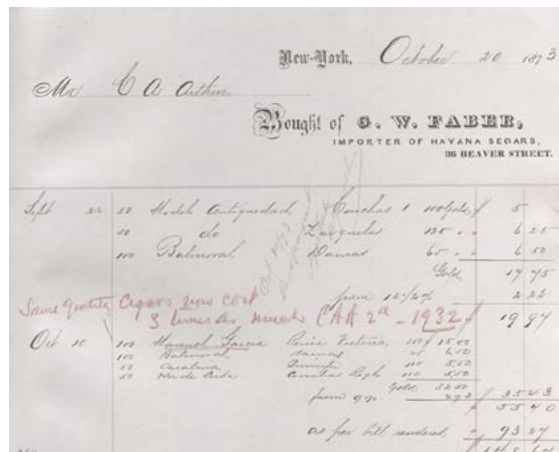 New-York, October 20 1873
Mr C A Arthur
Bought of G. W. FABER,
IMPORTER OF HAVANA SEGARS,
36 BEAVER STREET.
Sept 22 50 Conchas 100 Gold $ 5
50 do 125 " " 6 25
100 Balmoral Damas 65 " " 6 50
Gold 17 75
prem 2 22
Same quality cigars now cost 19 97
3 times as much CAA 2d - 1932
Oct 10 100 Manuel Garcia Reina Victoria 150 $ 15.00
100 Balmoral Damas 6.50
50 Carolina 110 5.50
50 110 5.50
Gold 32.50
prem 2 93 35 43
$ 55 40
as per bill rendered " 93 27